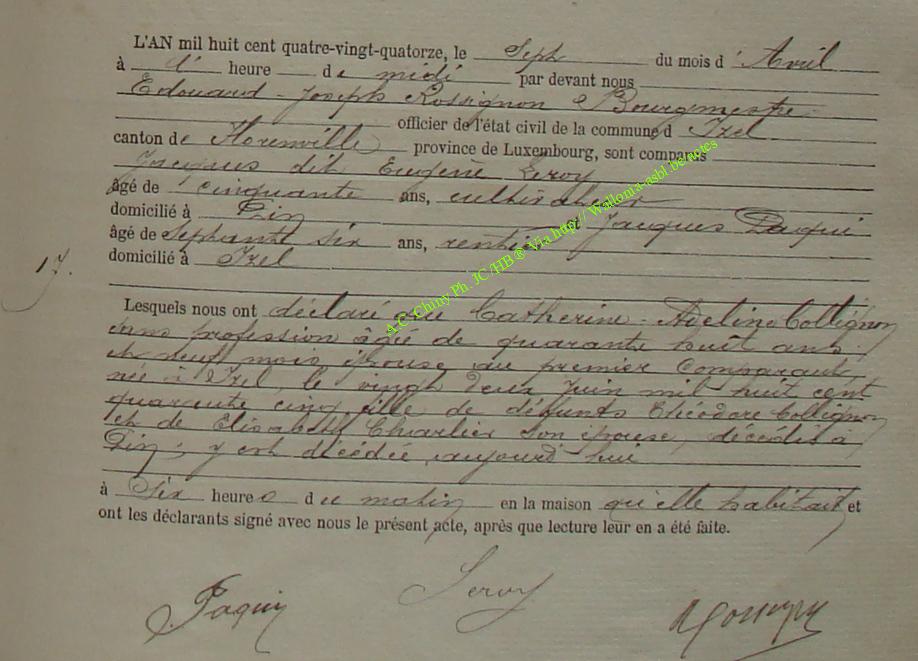 L'AN mil huit cent quatre-vingt-quatorze, le Sept du mois d' Avril
à l' heure de midi par devant nous
Edouard - Joseph Rossignon Bourgmestre
officier de l'état civil de la commune d Izel
canton de Florenville province de Luxembourg, sont comparus
Jacques dit Eugène Leroy
âgé de cinquante ans, cultivateur
domicilié à Pin et Jacques Paquin
âgé de Septante six ans, rentier
domicilié à Izel
17.
Lesquels nous ont déclaré que Catherine - Adeline Collignon
sans profession âgée de quarante huit ans
et neuf mois épouse au premier Comparant,
née à Izel, le vingt deux Juin mil huit cent
quarante cinq fille de défunts Théodore Collignon
et de Elisabeth Charlier son épouse, décédés à
Pin ; y est décédée aujourd'hui
à Six heures du matin en la maison qu'elle habitait et
ont les déclarants signé avec nous le présent acte, après que lecture leur en a été faite.
Paquin Leroy
A.C. Chiny Ph. JC /HB ® Via http:// Wallonia-asbl.be/actes